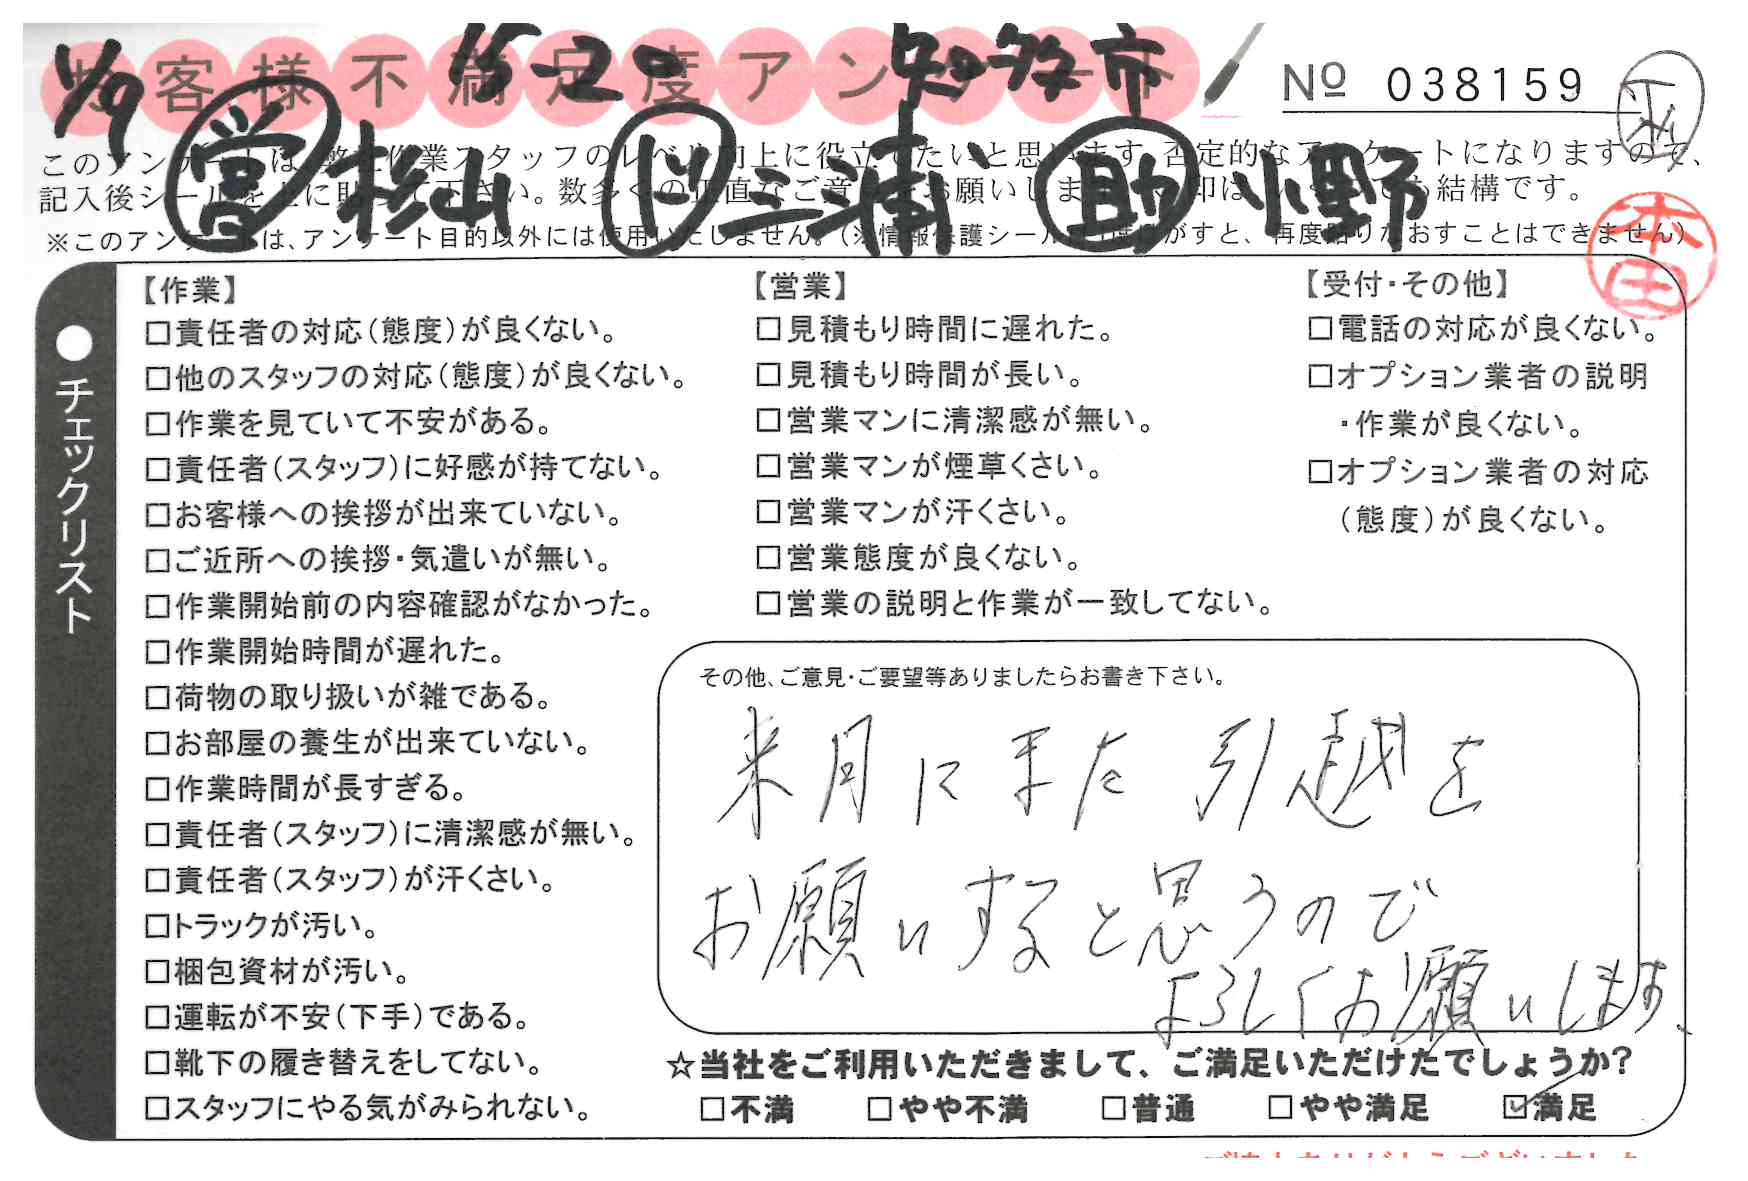 お客様不満足度アンケート
1/9 15-20 知多市
№ 038159
営 杉山 ド 三浦 助 小野
このアンケートは、弊社作業スタッフのレベル向上に役立てたいと思います。否定的なアンケートになりますので、
記入後シールを上に貼って下さい。数多くの正直なご意見をお願いします。
※このアンケートは、アンケート目的以外には使用いたしません。(※情報保護シールは1度はがすと、再度貼りなおすことはできません)
本田
●チェックリスト
【作業】
□責任者の対応(態度)が良くない。
□他のスタッフの対応(態度)が良くない。
□作業を見ていて不安がある。
□責任者(スタッフ)に好感が持てない。
□お客様への挨拶が出来ていない。
□ご近所への挨拶・気遣いが無い。
□作業開始前の内容確認がなかった。
□作業開始時間が遅れた。
□荷物の取り扱いが雑である。
□お部屋の養生が出来ていない。
□作業時間が長すぎる。
□責任者(スタッフ)に清潔感が無い。
□責任者(スタッフ)が汗くさい。
□トラックが汚い。
□梱包資材が汚い。
□運転が不安(下手)である。
□靴下の履き替えをしてない。
□スタッフにやる気がみられない。
【営業】
□見積もり時間に遅れた。
□見積もり時間が長い。
□営業マンに清潔感が無い。
□営業マンが煙草くさい。
□営業マンが汗くさい。
□営業態度が良くない。
□営業の説明と作業が一致してない。
【受付・その他】
□電話の対応が良くない。
□オプション業者の説明
・作業が良くない。
□オプション業者の対応
(態度)が良くない。
その他、ご意見・ご要望等ありましたらお書き下さい。
来月にまた引越を
お願いすると思うので
よろしくお願いします、
☆当社をご利用いただきまして、ご満足いただけたでしょうか?
□不満 □やや不満 □普通 □やや満足 ☑満足
ご協力ありがとうございました